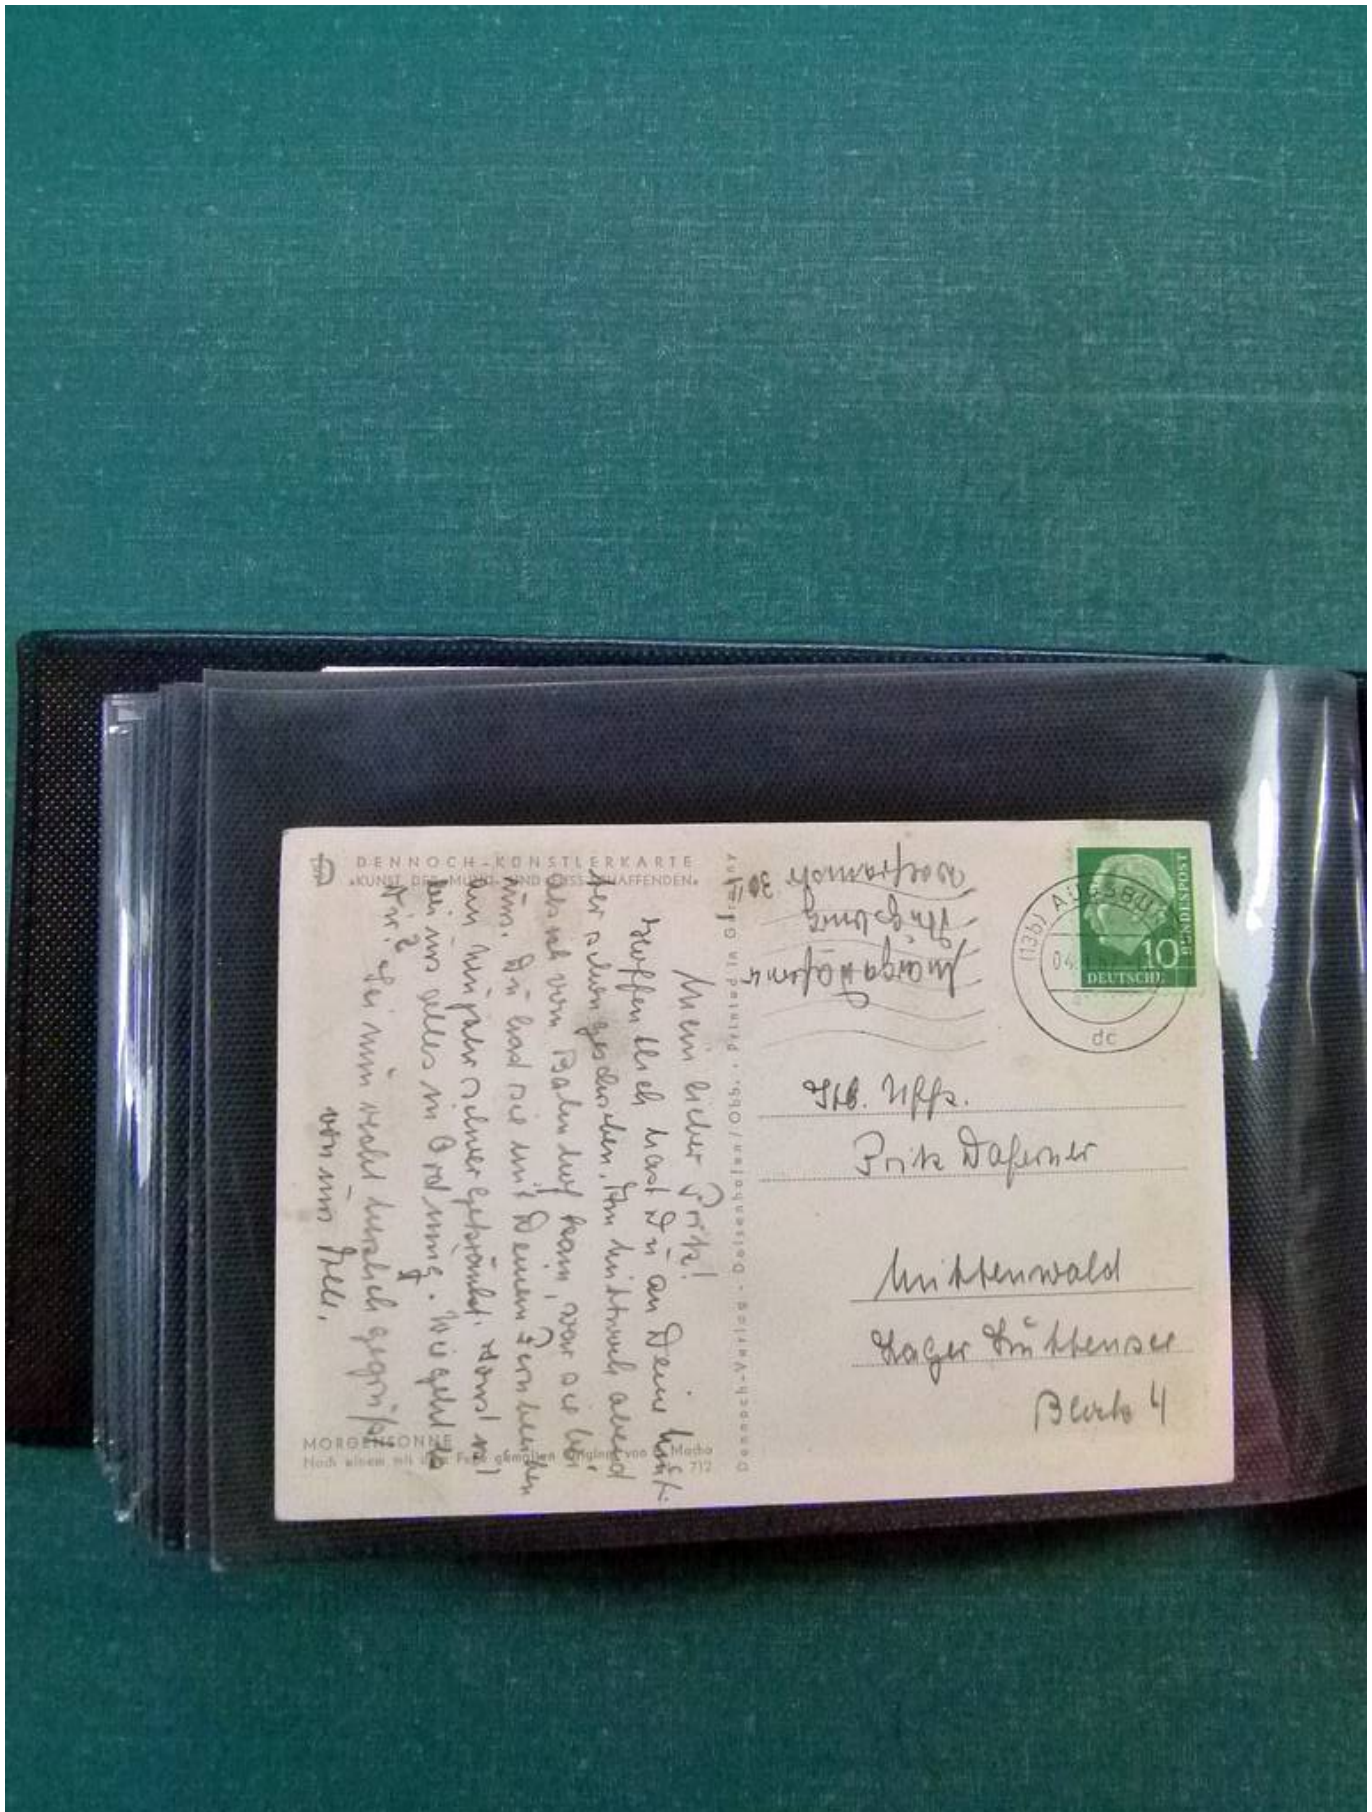 DENNOCH-KÜNSTLERKARTE
»KUNST DER MUND- UND FUSSSCHAFFENDEN«
Mein lieber Fritz!
Hoffentlich hast Du an Deine Mutti
schon geschrieben. Am Mittwoch abend
als ich vom Bahnhof kam, war sie bei
uns. Du hast sie mit Deinem
schwer gekränkt. Sonst ist
bei uns alles in Ordnung. Wie geht es
Dir? Sei nun recht herzlich gegrüßt
von uns
MORGENSONNE
Nach einem mit dem Fuße gemalten Original von Macho
712
Dennoch-Verlag - Deisenhofen/Obb. · Printed in Germany
Augsburg
30
(13b) AUGSBU
04
dc
10
DEUTSCHE
BUNDESPOST
Uffz.
Fritz Daferner
Mittenwald
Lager Luttensee
Block 4